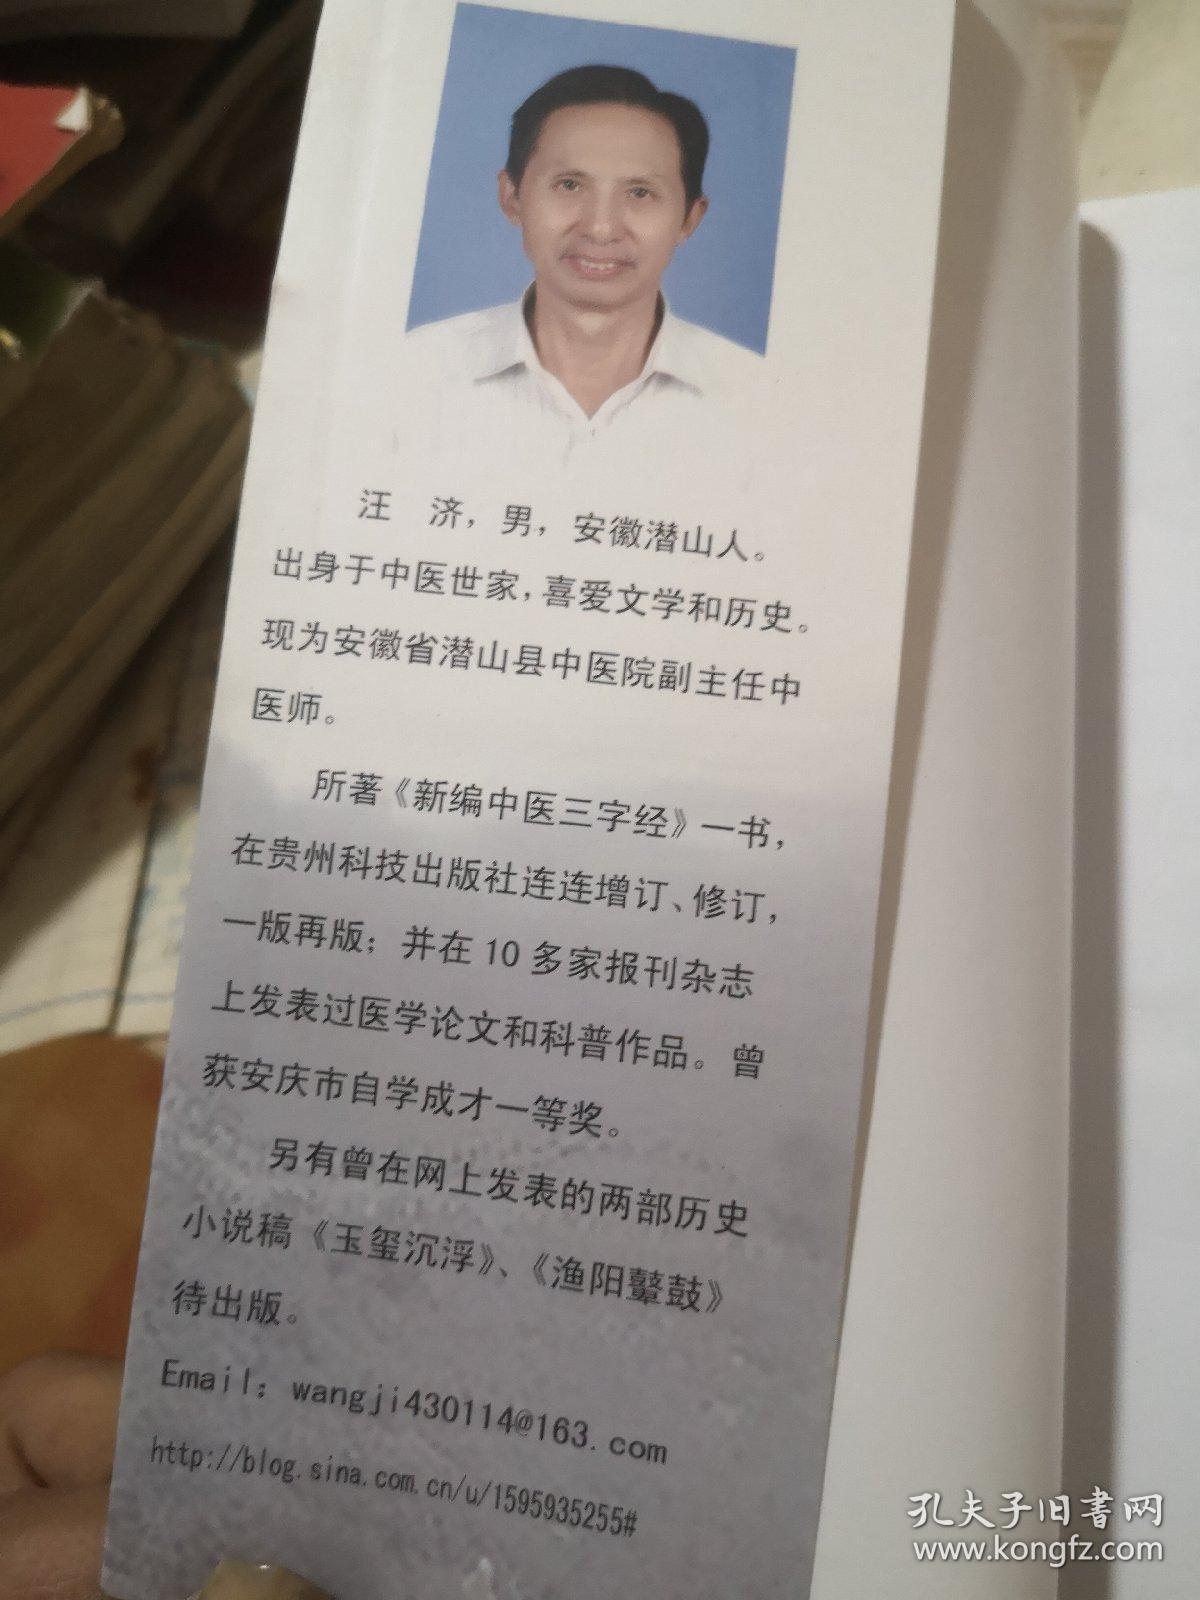 汪　济，男，安徽潜山人。
出身于中医世家，喜爱文学和历史。
现为安徽省潜山县中医院副主任中
医师。
所著《新编中医三字经》一书，
在贵州科技出版社连连增订、修订，
一版再版；并在10多家报刊杂志
上发表过医学论文和科普作品。曾
获安庆市自学成才一等奖。
另有曾在网上发表的两部历史
小说稿《玉玺沉浮》、《渔阳鼙鼓》
待出版。
Email：wangji430114@163.com
http://blog.sina.com.cn/u/1595935255#
孔夫子旧書网
www.kongfz.com